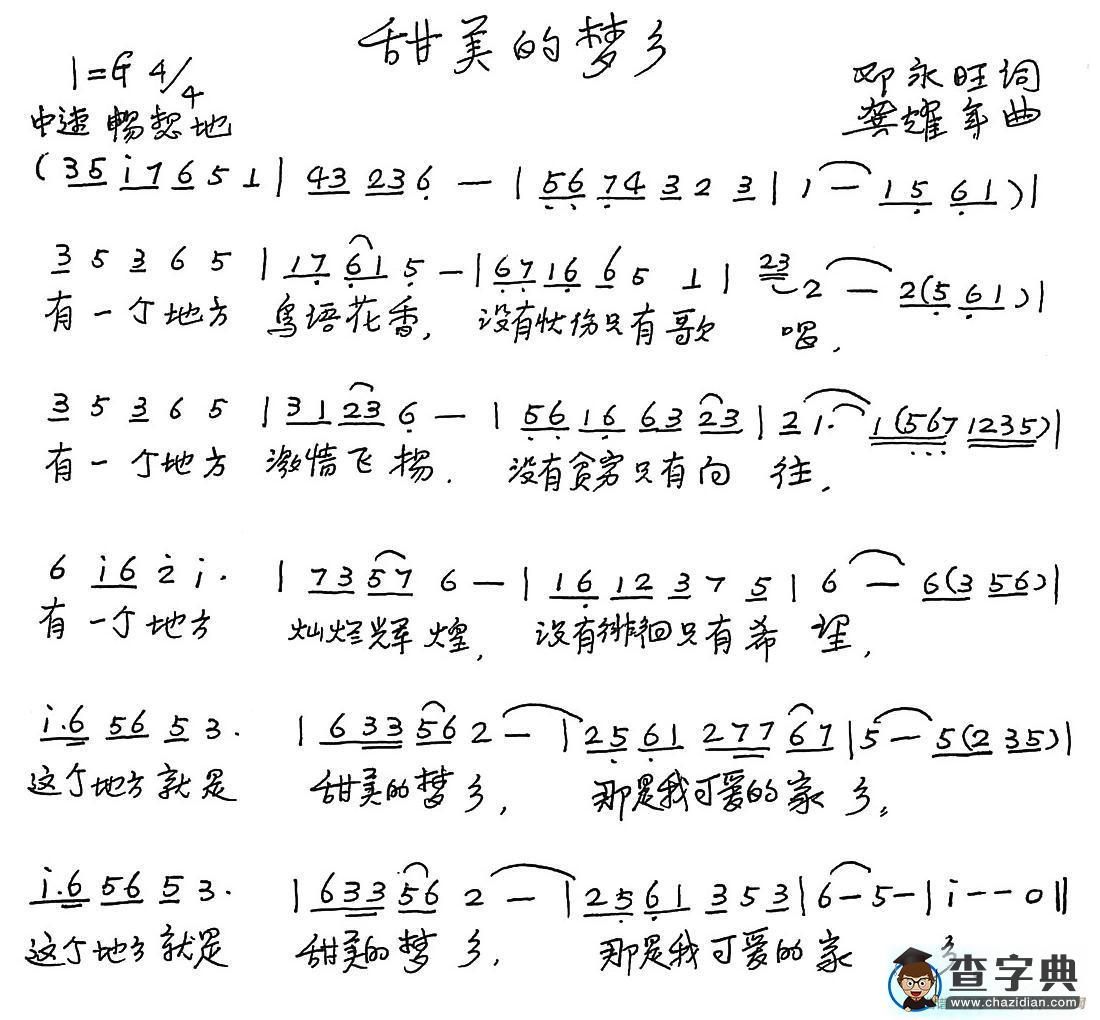 甜美的梦乡
1=G 4/4
邓永旺词
中速 畅想地
龚耀年曲
(35 i7 6 5 1 | 43 23 6 — | 56 74 3 2 3 | 1 — 15 61) |
3 5 3 6 5 | 17 61 5 — | 67 16 6 5 1 | 23 2 — 2(5 61) |
有一个地方 鸟语花香, 没有忧伤只有歌 唱,
3 5 3 6 5 | 31 23 6 — | 56 16 63 23 | 2 1. 1(567 1235) |
有一个地方 激情飞扬. 没有贫穷只有向 往,
6 i6 2 i. | 73 57 6 — | 16 12 3 7 5 | 6 — 6(3 56) |
有一个地方 灿烂辉煌, 没有徘徊只有希 望,
i.6 56 5 3. | 633 56 2 — | 25 61 277 67 | 5 — 5(2 35) |
这个地方就是 甜美的梦乡, 那是我可爱的家乡。
i.6 56 5 3. | 633 56 2 — | 25 61 3 5 3 | 6 — 5 — | i — — 0 ‖
这个地方就是 甜美的梦乡, 那是我可爱的家 乡
查字典
www.chazidian.com